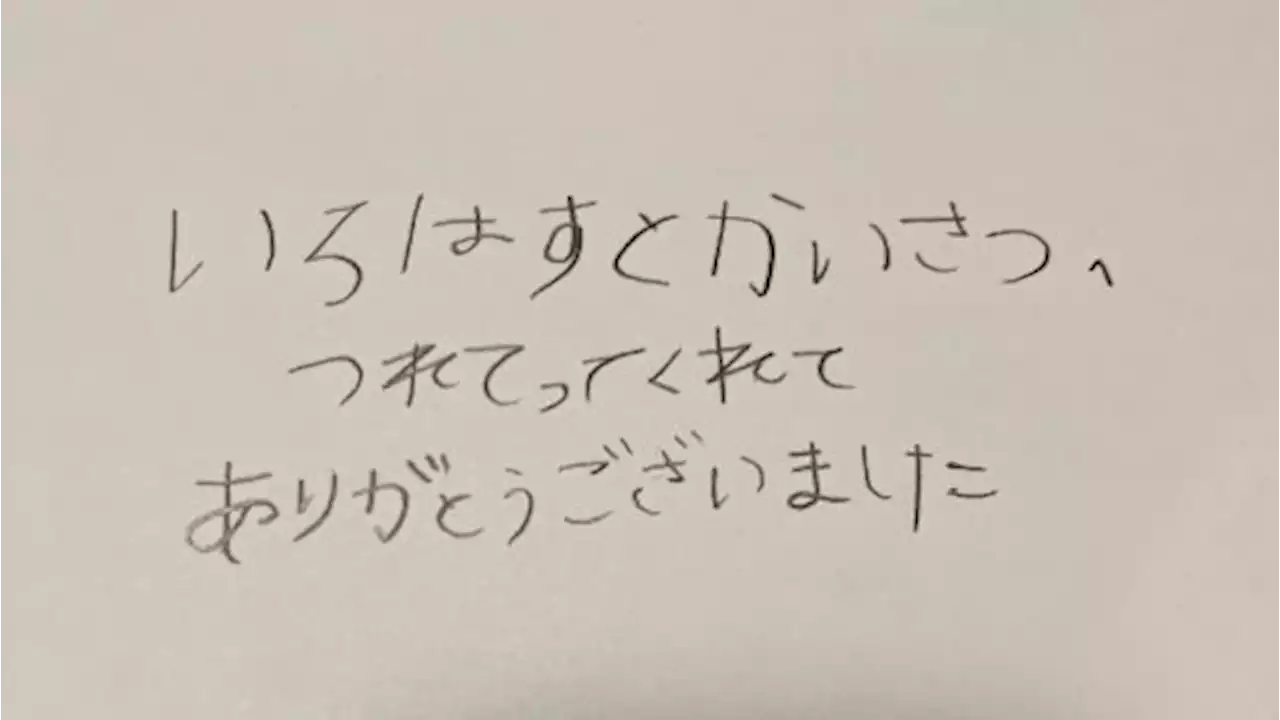 いろはすとかいさつ、
つれてってくれて
ありがとうございました